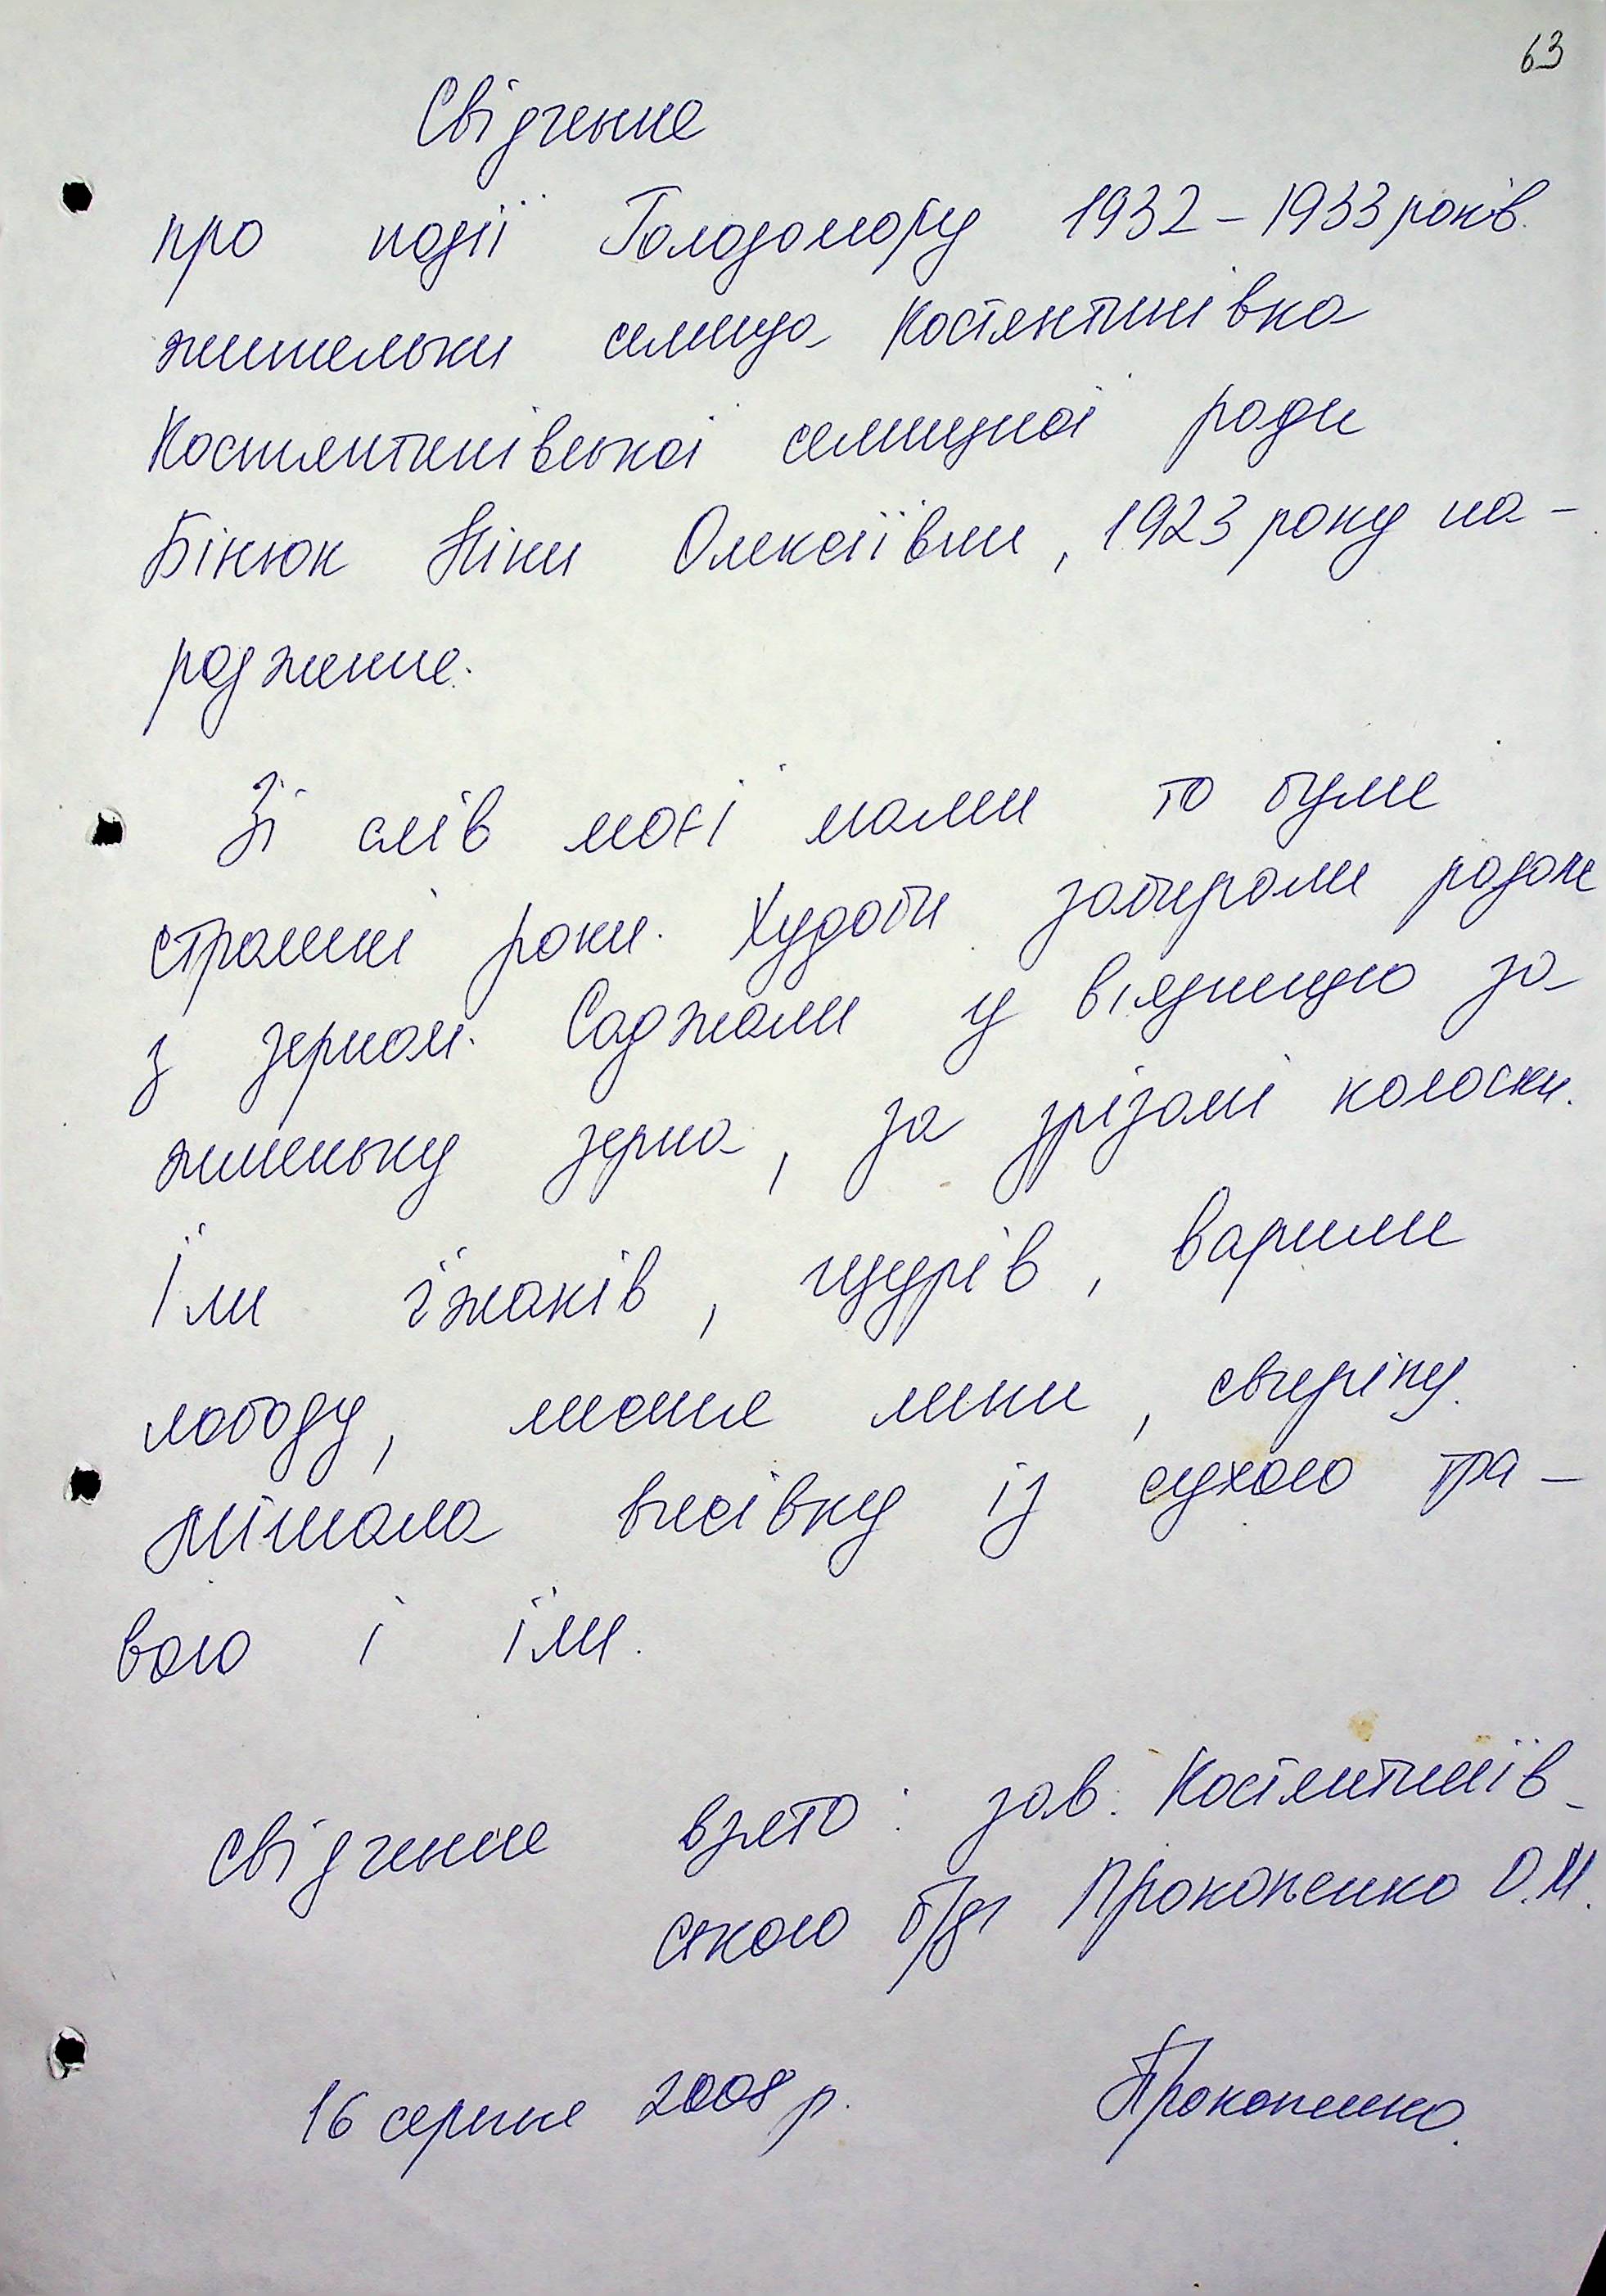 63
Свідчення
про події Голодомору 1932-1933 років.
жительки селища Костянтинівка
Костянтинівської селищної ради
Бінюк Ніни Олексіївни, 1923 року на-
родження.
Зі слів моєї мами то були
страшні роки. Худоби забирали разом
з зерном. Саджали у вязницю за
жменьку зерна, за зрізані колоски.
Їли їжаків, щурів, варили
лободу, листя липи, свиріпу.
Мішала висівку із сухою тра-
вою і їли.
Свідчення взято: зав. Костянтинів-
ською б/ф Прокопенко О.М.
16 серпня 2008 р. Прокопенко.